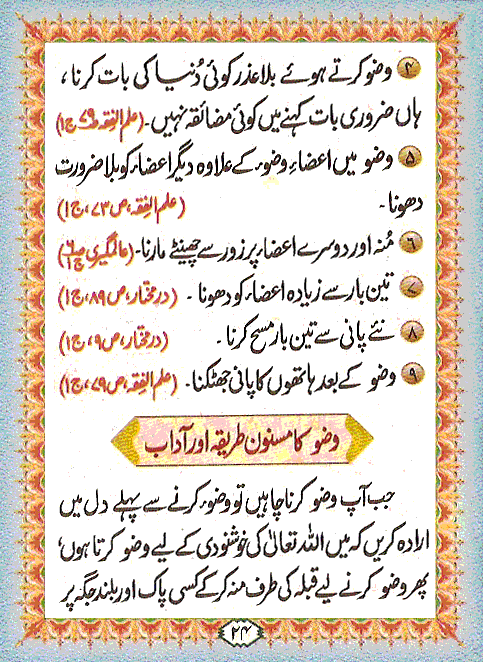 ۴ وضو کرتے ہوئے بلا عذر کوئی دُنیا کی بات کرنا،
ہاں ضروری بات کہنے میں کوئی مضائقہ نہیں۔ (علم الفقہ ص۷۹ ج۱)
۵ وضو میں اعضاءِ وضوء کے علاوہ دیگر اعضاء کو بلا ضرورت
دھونا۔ (علم الفقہ، ص۷۳، ج۱)
۶ مُنہ اور دوسرے اعضاء پر زور سے چھینٹے مارنا۔ (عالمگیری ج۱)
۷ تین بار سے زیادہ اعضاء کو دھونا۔ (درمختار، ص۸۹، ج۱)
۸ نئے پانی سے تین بار مسح کرنا۔ (درمختار، ص۹۰، ج۱)
۹ وضو کے بعد ہاتھوں کا پانی جھٹکنا۔ (علم الفقہ، ص۷۹، ج۱)
وضو کا مسنون طریقہ اور آداب
جب آپ وضو کرنا چاہیں تو وضوء کرنے سے پہلے دل میں
ارادہ کریں کہ میں اللہ تعالیٰ کی خوشنودی کے لیے وضو کرتا ہوں،
پھر وضو کرنے لیے قبلہ کی طرف منہ کرکے کسی پاک اور بلند جگہ پر
۲۴